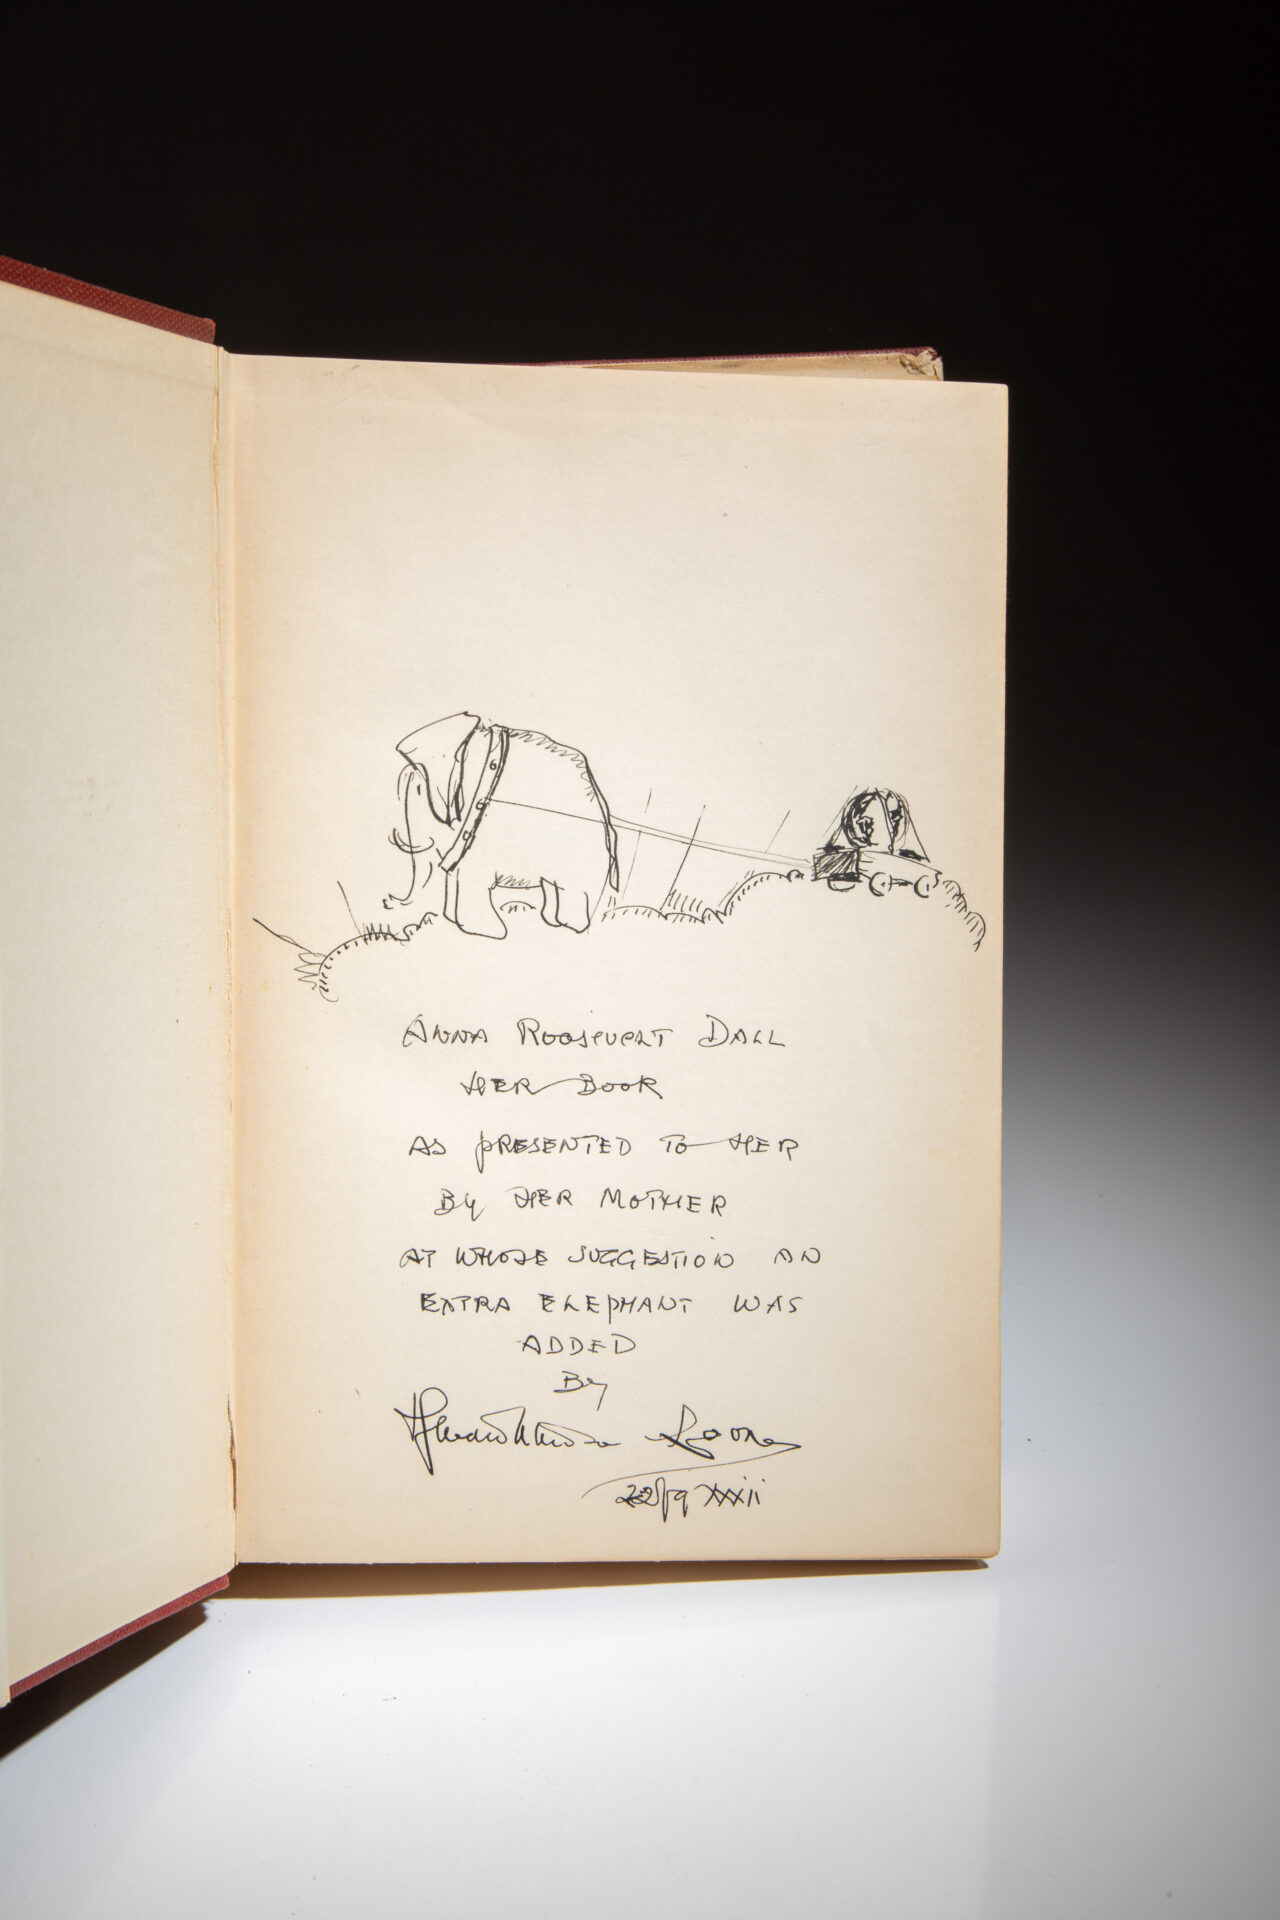 ANNA ROOSEVELT DALL
HER BOOK
AS PRESENTED TO HER
BY HER MOTHER
AT WHOSE SUGGESTION AN
EXTRA ELEPHANT WAS
ADDED
BY
Loon
XXXii